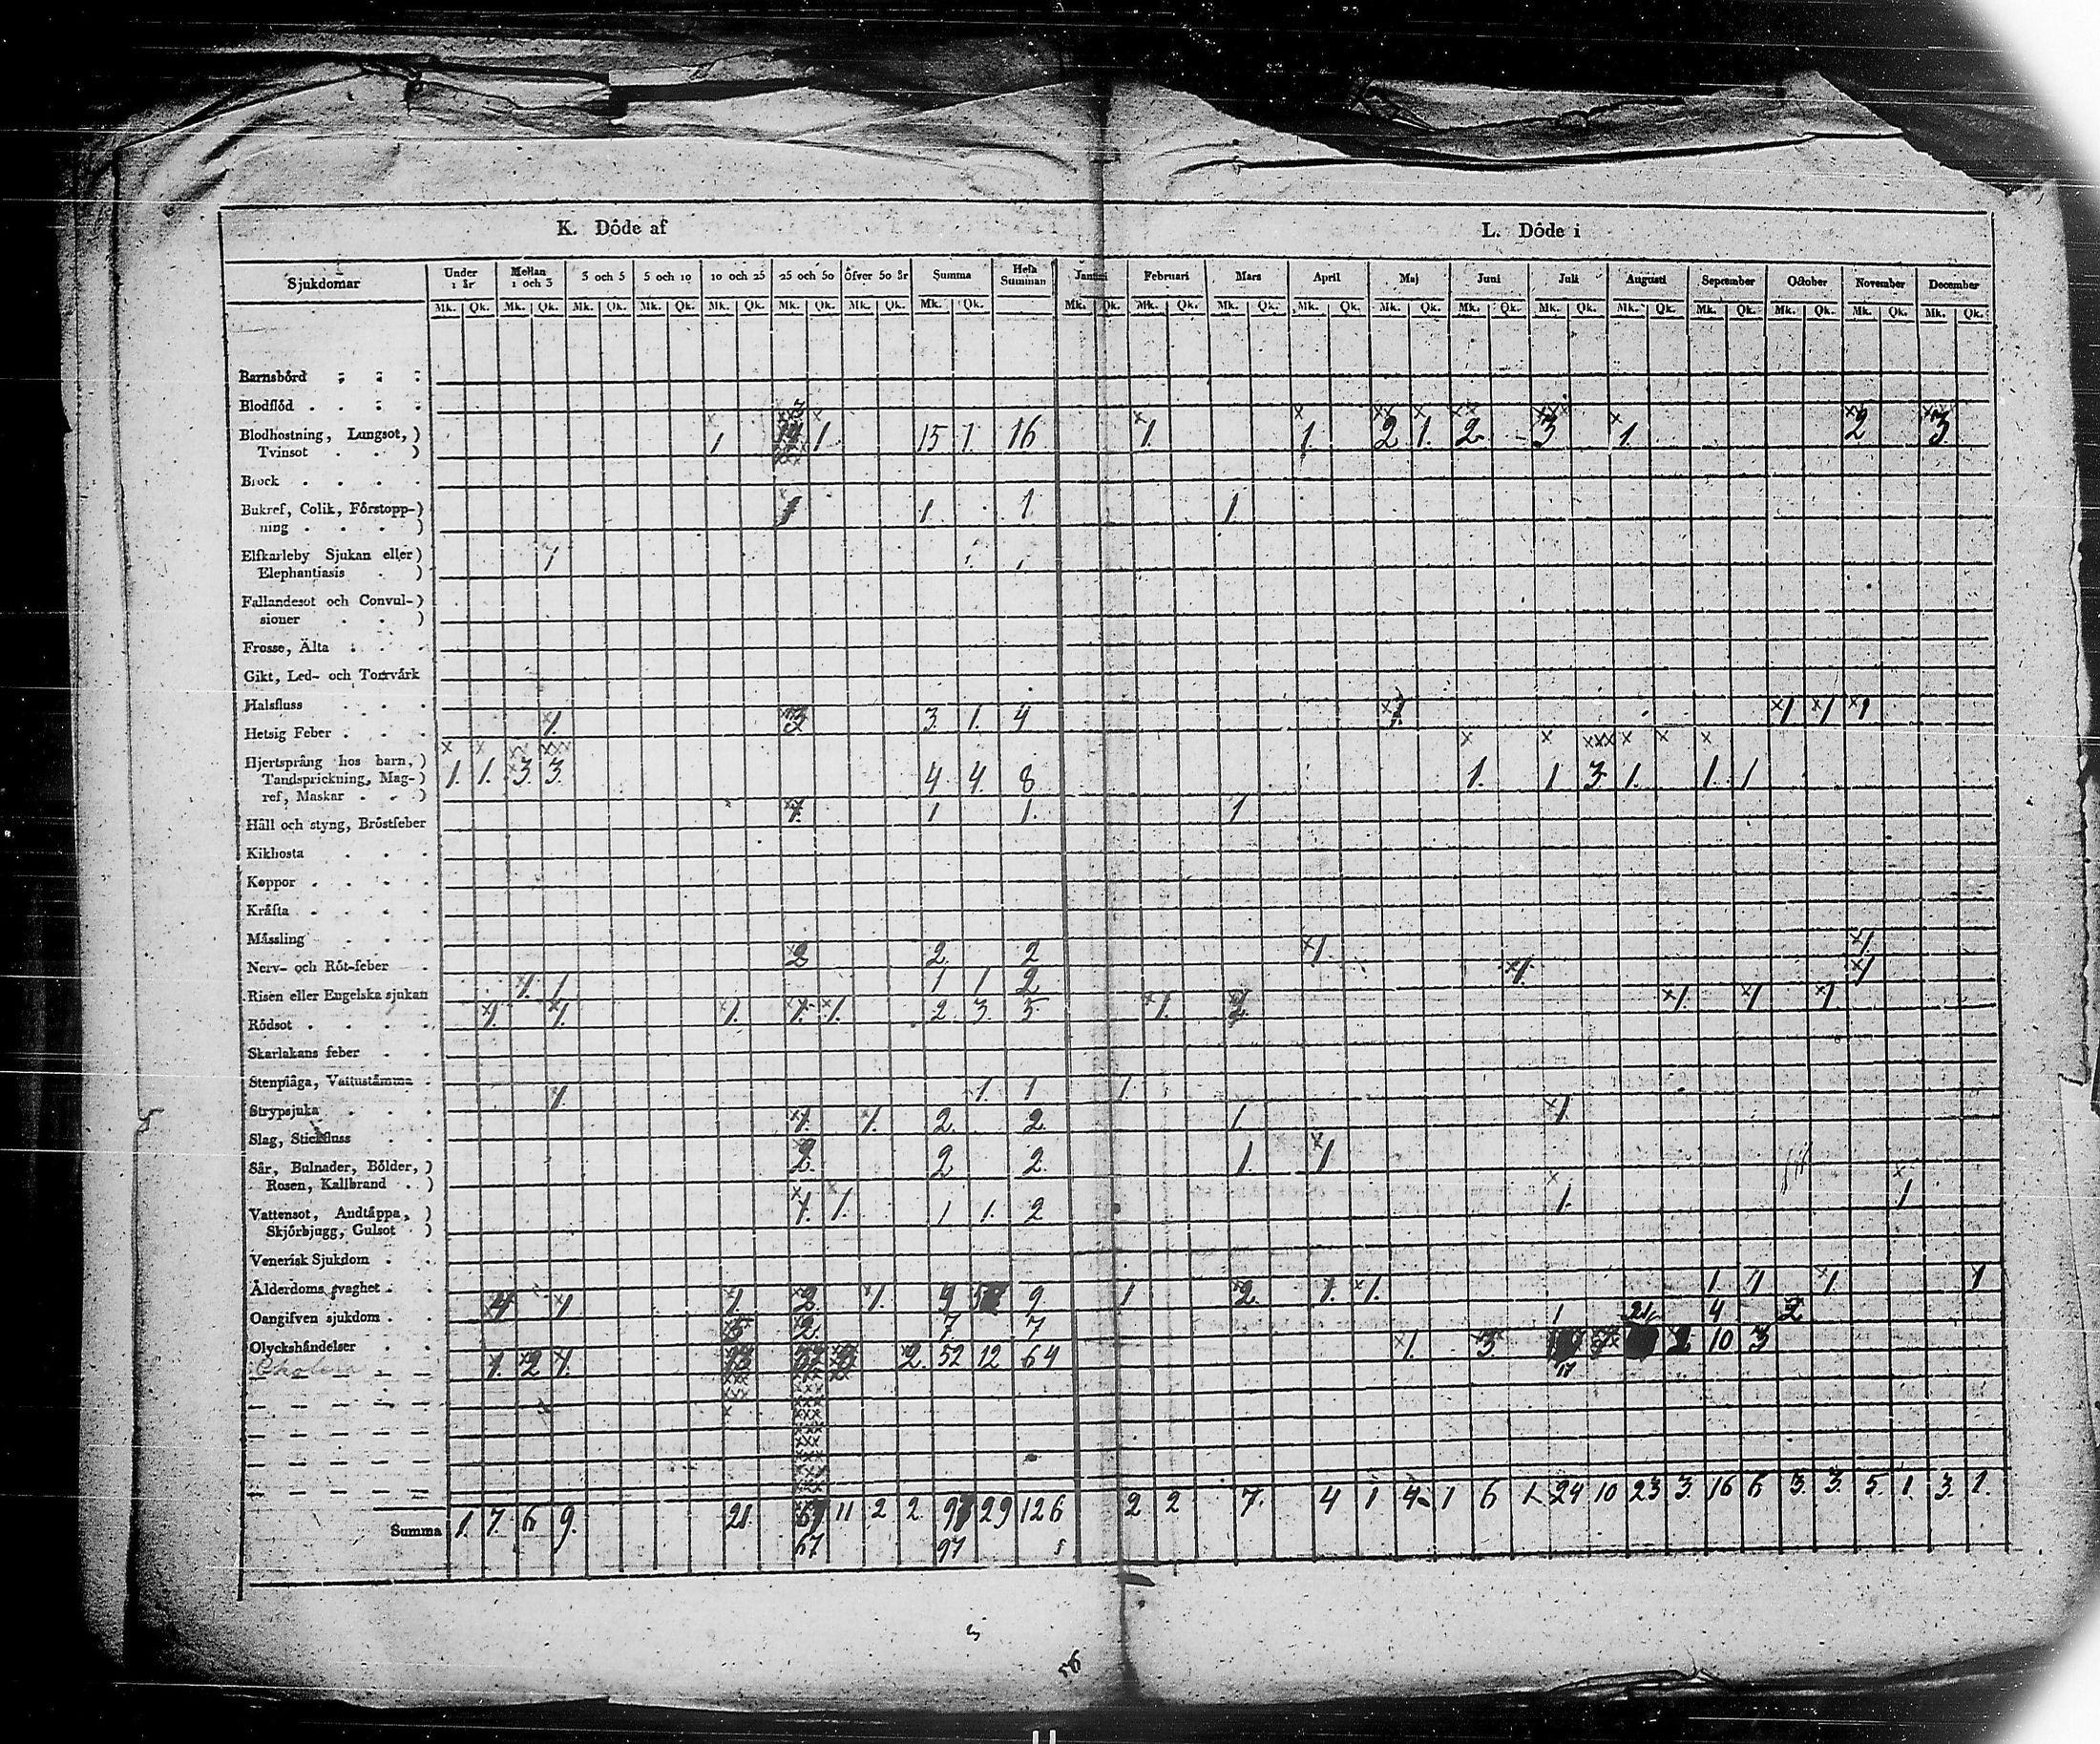 K. Döde af L. Döde i
Sjukdomar Under 1 år Mellan 1 och 3 3 och 5 5 och 10 10 och 25 25 och 50 Öfver 50 år Summa Hela Summan Januari Februari Mars April Maj Juni Juli Augusti September October November December
Mk. Qk. Mk. Qk. Mk. Qk. Mk. Qk. Mk. Qk. Mk. Qk. Mk. Qk. Mk. Qk. Mk. Qk. Mk. Qk. Mk. Qk. Mk. Qk. Mk. Qk. Mk. Qk. Mk. Qk. Mk. Qk. Mk. Qk. Mk. Qk. Mk. Qk. Mk. Qk.
Barnsbörd
Blodflöd
Blodhostning, Lungsot, ) 1 1 15 1. 16 1. 1. 2 1. 2 3 1. 2 3.
Tvinsot )
Brock
Bukref, Colik, Förstopp-) 1 1. 1 1.
ning )
Elfkarleby Sjukan eller) 1
Elephantiasis )
Fallandesot och Convul-)
sioner )
Frosse, Älta
Gikt, Led- och Torrvärk
Halsfluss
Hetsig Feber 1. 3 3. 1. 4 1 1 1 1
Hjertsprång hos barn, )
Tandsprickning, Mag-) 1. 1. 3. 3. 4 4. 8 1. 1 3 1. 1. 1
ref, Maskar )
Håll och styng, Bröstfeber 1. 1 1. 1
Kikhosta
Koppor
Kräfta
Mässling
Nerv- och Röt-feber 2 2. 2 1. 1.
Risen eller Engelska sjukan 1. 1 1 1 2 1. 1
Rödsot 1. 1. 1. 1. 1. 2. 3 5. 1. 2. 1. 1 1.
Skarlakans feber
Stenplåga, Vattustämma
Strypsjuka 1. 1 1 1
Slag, Stickfluss 1. 1. 2. 2. 1. 1.
Sår, Bulnader, Bölder, ) 2. 2 2. 1. 1
Rosen, Kallbrand )
Vattensot, Andtäppa, ) 1. 1. 1 1. 2 1. 1
Skjörbjugg, Gulsot )
Venerisk Sjukdom
Ålderdoms svaghet
Oangifven sjukdom 4 1 1. 2 1. 9 1 2. 1. 1. 1 1 1. 1
Olyckshändelser 5 2. 7. 7 1 21. 4 2
Cholera 1. 2 1. 2. 52 12 64 1. 3. 17 10 3
Summa 1. 7. 6 9. 21. 11 2 2. 29 126 2 2 7. 4 1 4. 1 6 1. 24 10 23 3. 16 6 3. 3. 5. 1. 3. 1.
67 97
56